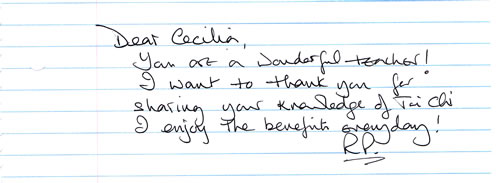 Dear Cecilia,
You are a wonderful teacher!
I want to thank you for
sharing your knowledge of Tai Chi
I enjoy the benefits everyday!
R.P.